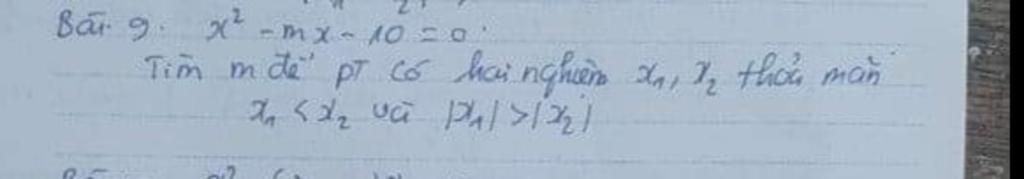 Bài 9. x² - mx - 10 = 0.
Tìm m để PT có hai nghiệm x₁, x₂ thoả mãn
x₁ < x₂ và |x₁| > |x₂|